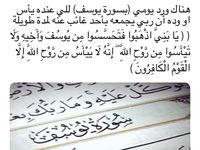 هناك ورد يومي (بسورة يوسف) للي عنده يأس
او وده أن ربي يجمعه بأحد غائب عنه لمدة طويلة
( ( يَا بَنِيَّ اذْهَبُوا فَتَحَسَّسُوا مِن يُوسُفَ وَأَخِيهِ وَلَا
تَيْأَسُوا مِن رَّوْحِ اللَّهِ ۖ إِنَّهُ لَا يَيْأَسُ مِن رَّوْحِ اللَّهِ إِلَّا
الْقَوْمُ الْكَافِرُونَ )
عَلَيْهِ وَمَا رَبُّكَ
سُورَةُ يُوسُفَ